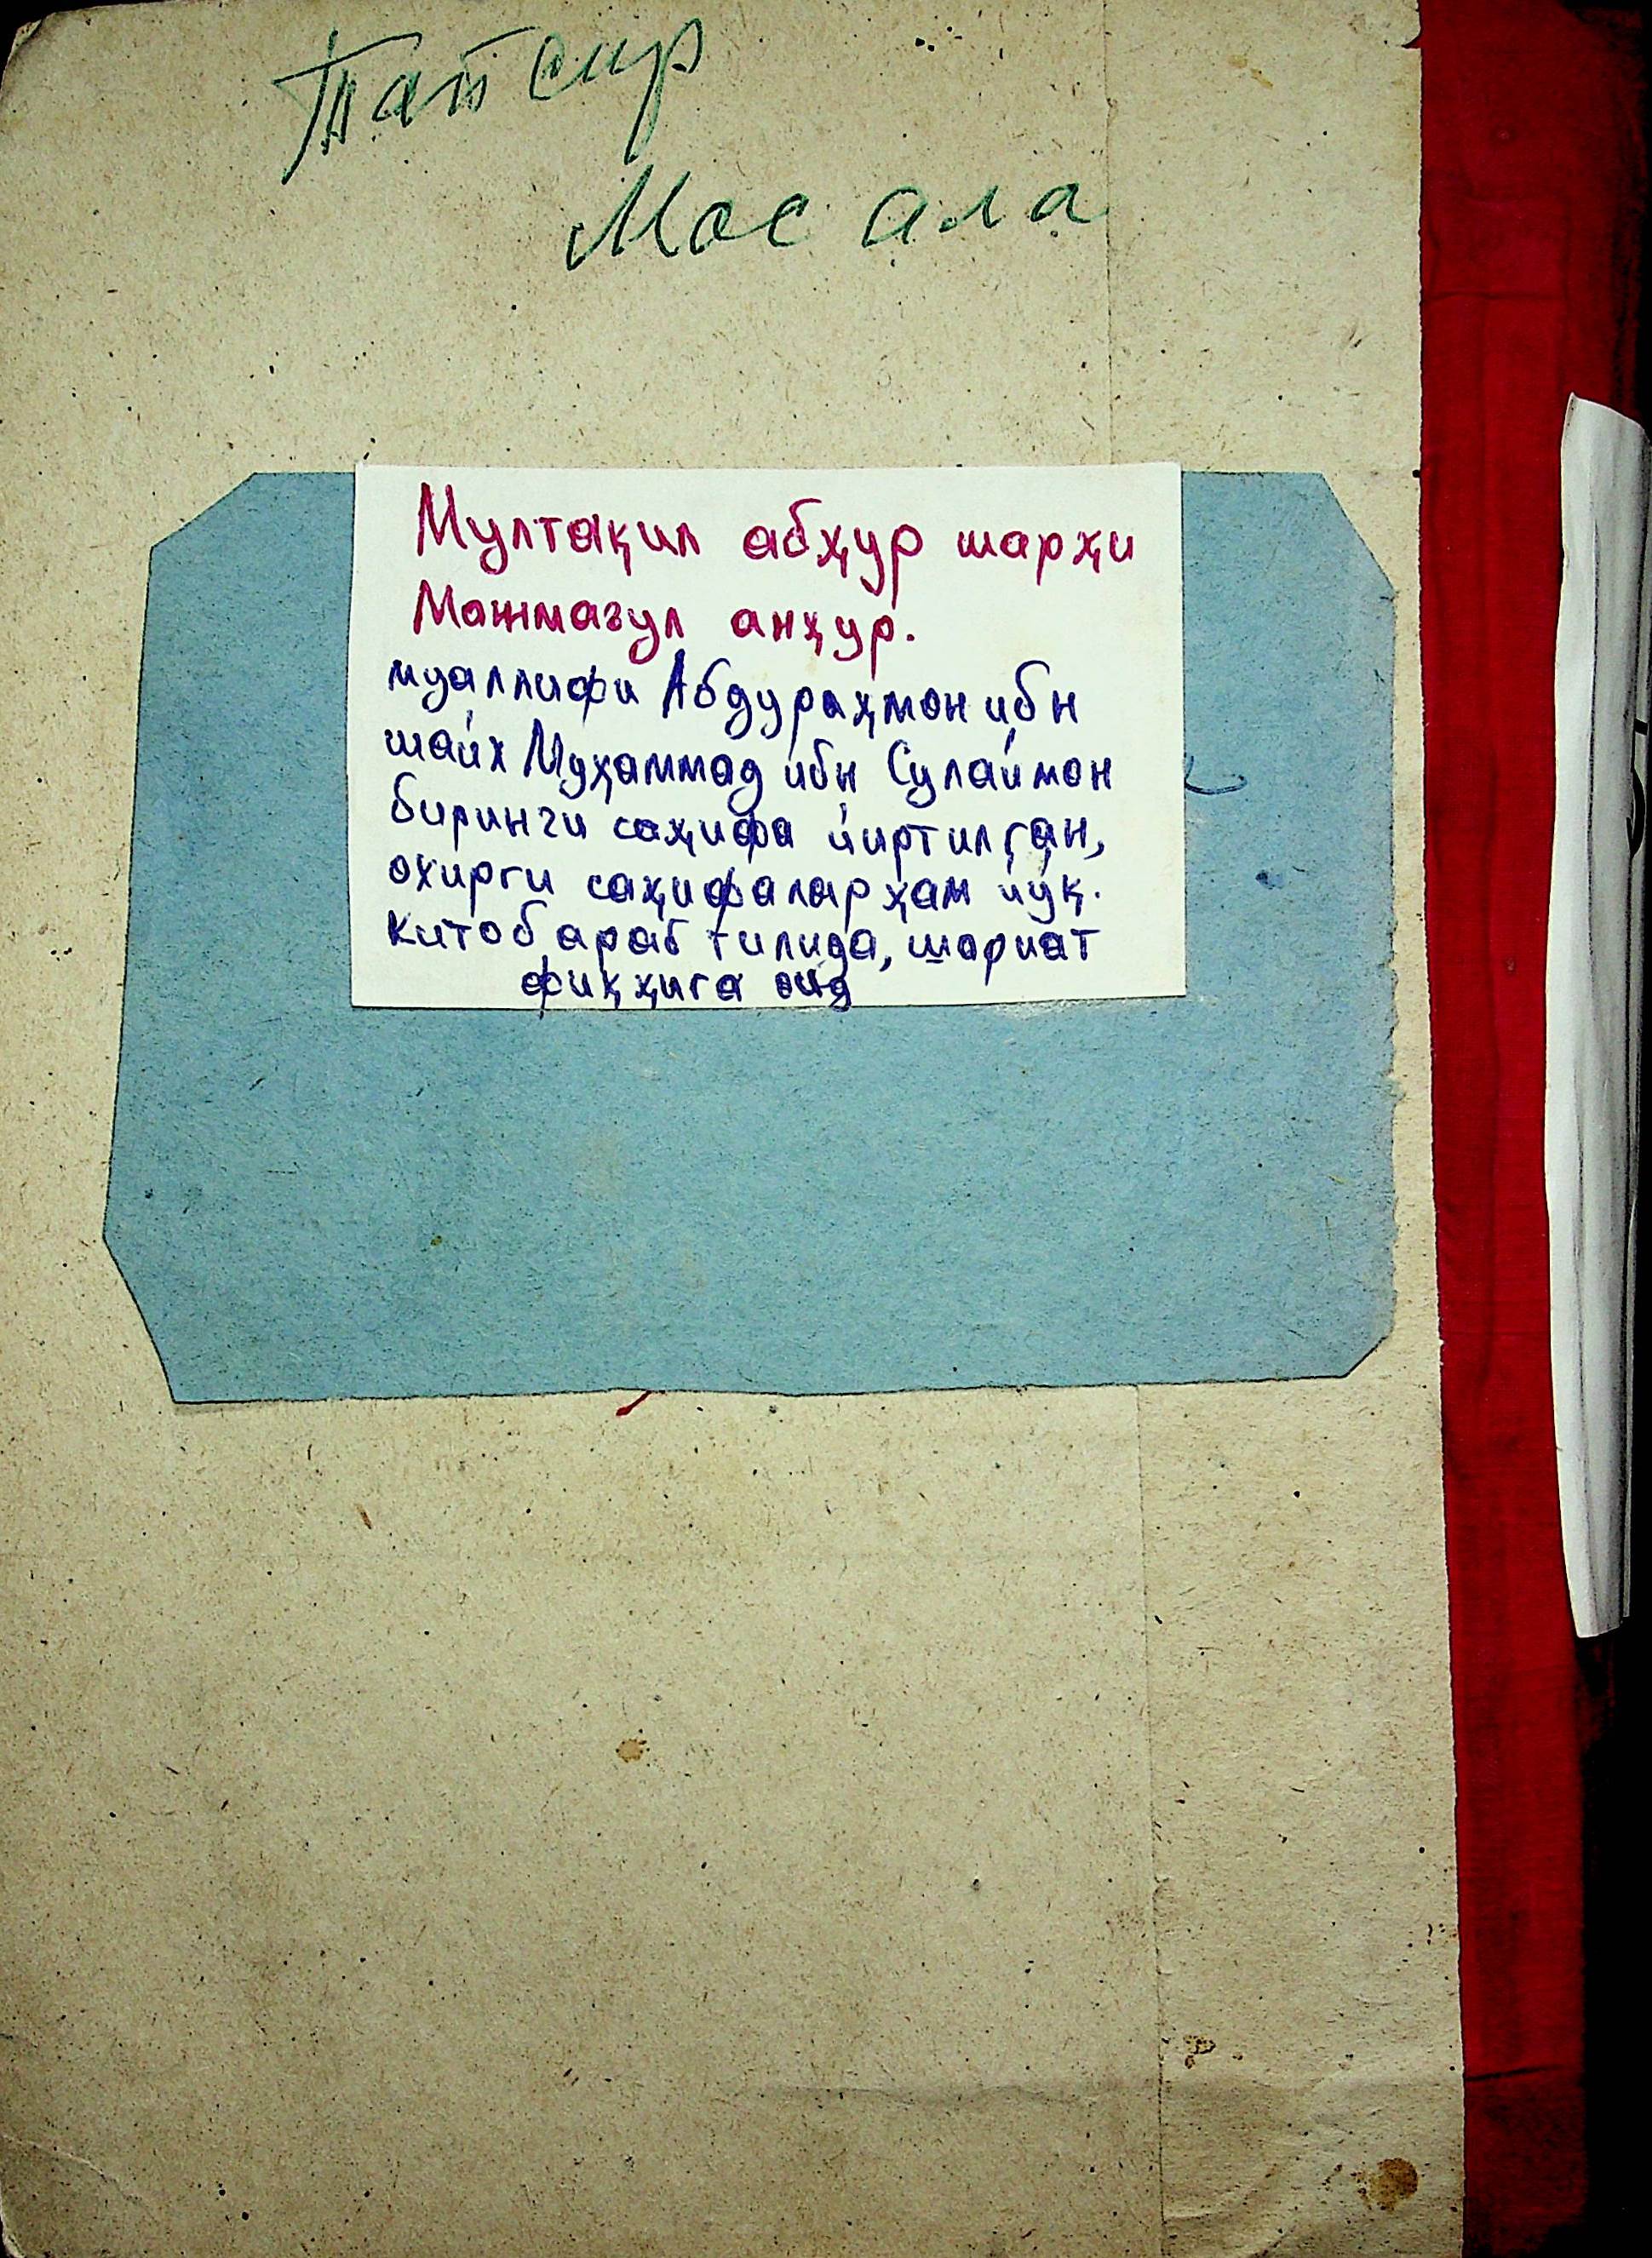 Тапсир
Мас ала
Мултақил абҳур шарҳи
Мажмагул анҳур.
муаллифи Абдураҳмон ибн
шайх Муҳаммад ибн Сулаймон
биринчи саҳифа йиртилган,
охирги саҳифалар ҳам йўқ.
Китоб араб тилида, шариат
фиқҳига оид